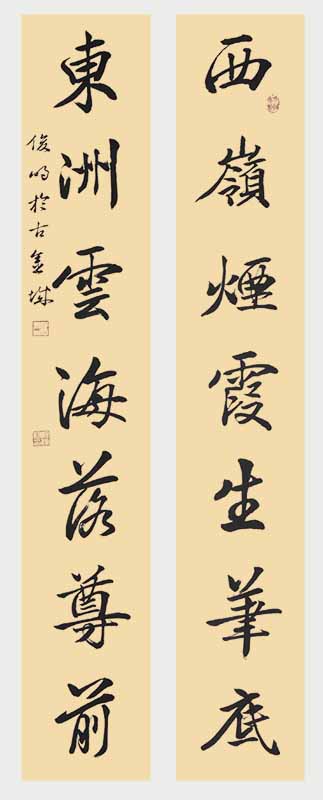 西嶺煙霞生筆底
東洲雲海落尊前
俊鳴於古金城